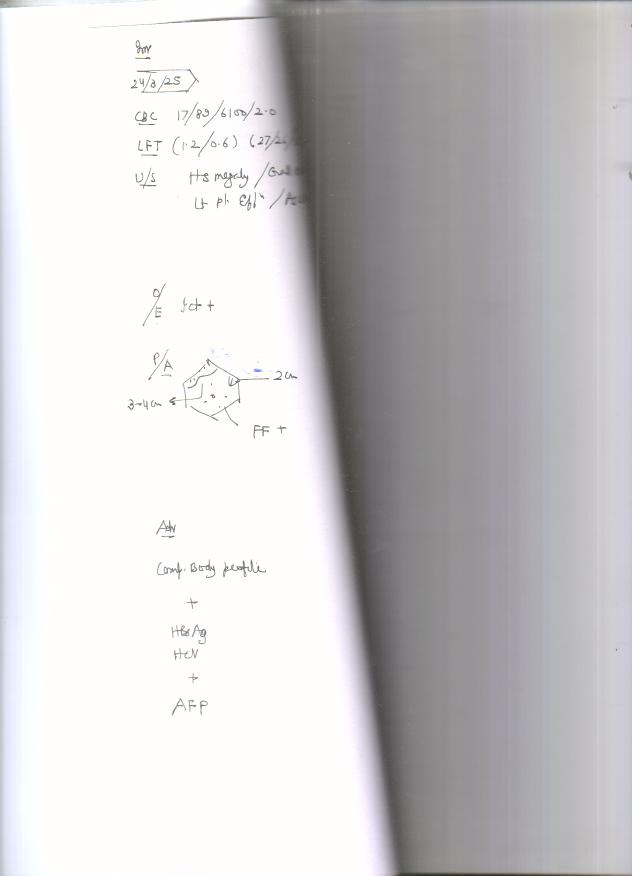 Inv
24/3/25
CBC 17/89/6100/2.0
LFT (1.2/0.6) (27/2
U/S HS megaly /
Lt Pl. Eff /
O/E Jct +
P/A
2 cm
3-4 cm
FF +
Adv
Comp. Body profile
+
HBsAg
HCV
+
AFP